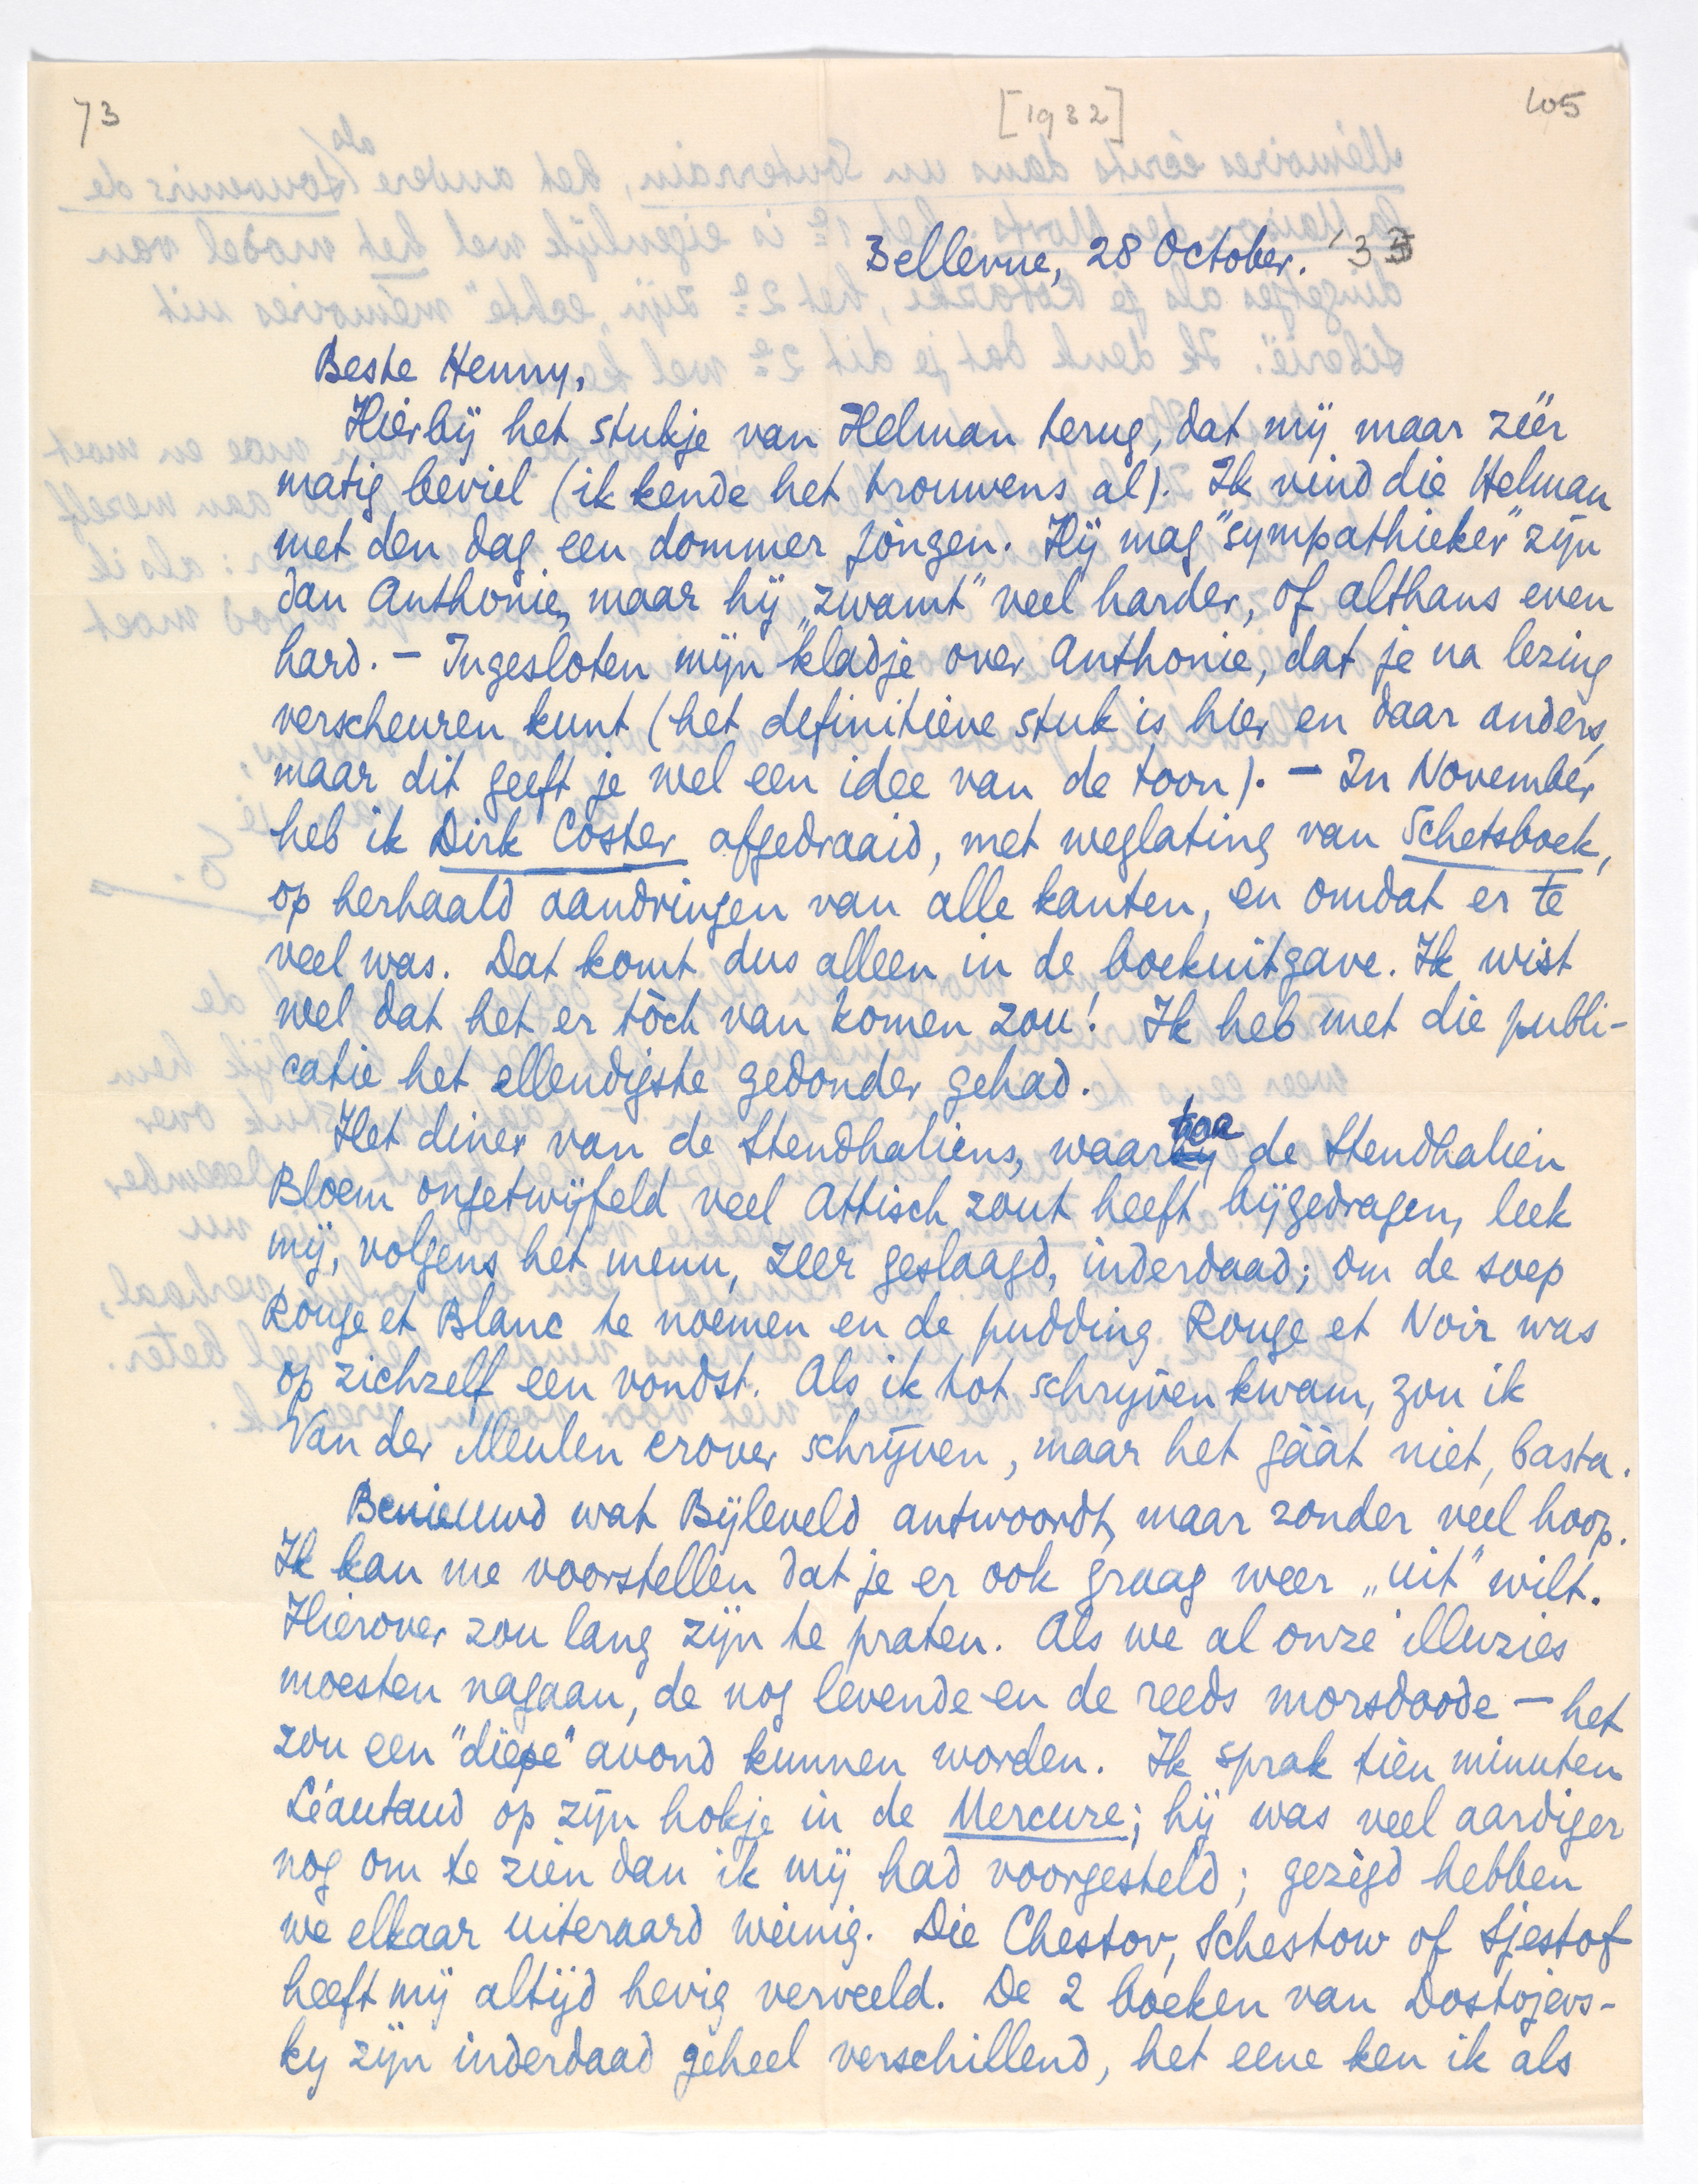 73 [1932] 105
Bellevue, 28 October. '33
Beste Henny,
Hierbij het stukje van Helman terug, dat mij maar zéér
matig beviel (ik kende het trouwens al). Ik vind die Helman
met den dag een dommer jongen. Hij mag "sympathieker" zijn
dan Anthonie, maar hij „zwamt" veel harder, of althans even
hard. — Ingesloten mijn kladje over Anthonie, dat je na lezing
verscheuren kunt (het definitieve stuk is hier en daar anders,
maar dit geeft je wel een idee van de toon). — In November
heb ik Dirk Coster afgedraaid, met weglating van Schetsboek,
op herhaald aandringen van alle kanten, en omdat er te
veel was. Dat komt dus alleen in de boekuitgave. Ik wist
wel dat het er tòch van komen zou! Ik heb met die publi-
catie het ellendigste gedonder gehad.
Het diner van de Stendhaliens, waartoe de Stendhalien
Bloem ongetwijfeld veel Attisch zout heeft bijgedragen, leek
mij, volgens het menu, zeer geslaagd, inderdaad; om de soep
Rouge et Blanc te noemen en de pudding Rouge et Noir was
op zichzelf een vondst. Als ik tot schrijven kwam, zou ik
Van der Meulen erover schrijven, maar het gáát niet, basta.
Benieuwd wat Bijleveld antwoordt, maar zonder veel hoop.
Ik kan me voorstellen dat je er ook graag weer „uit" wilt.
Hierover zou lang zijn te praten. Als we al onze illuzies
moesten nagaan, de nog levende en de reeds morsdoode — het
zou een "diepe" avond kunnen worden. Ik sprak tien minuten
Léautaud op zijn hokje in de Mercure; hij was veel aardiger
nog om te zien dan ik mij had voorgesteld; gezegd hebben
we elkaar uiteraard weinig. Die Chestov, Schestow of Sjestof
heeft mij altijd hevig verveeld. De 2 boeken van Dostojevs-
ky zijn inderdaad geheel verschillend, het eene ken ik als